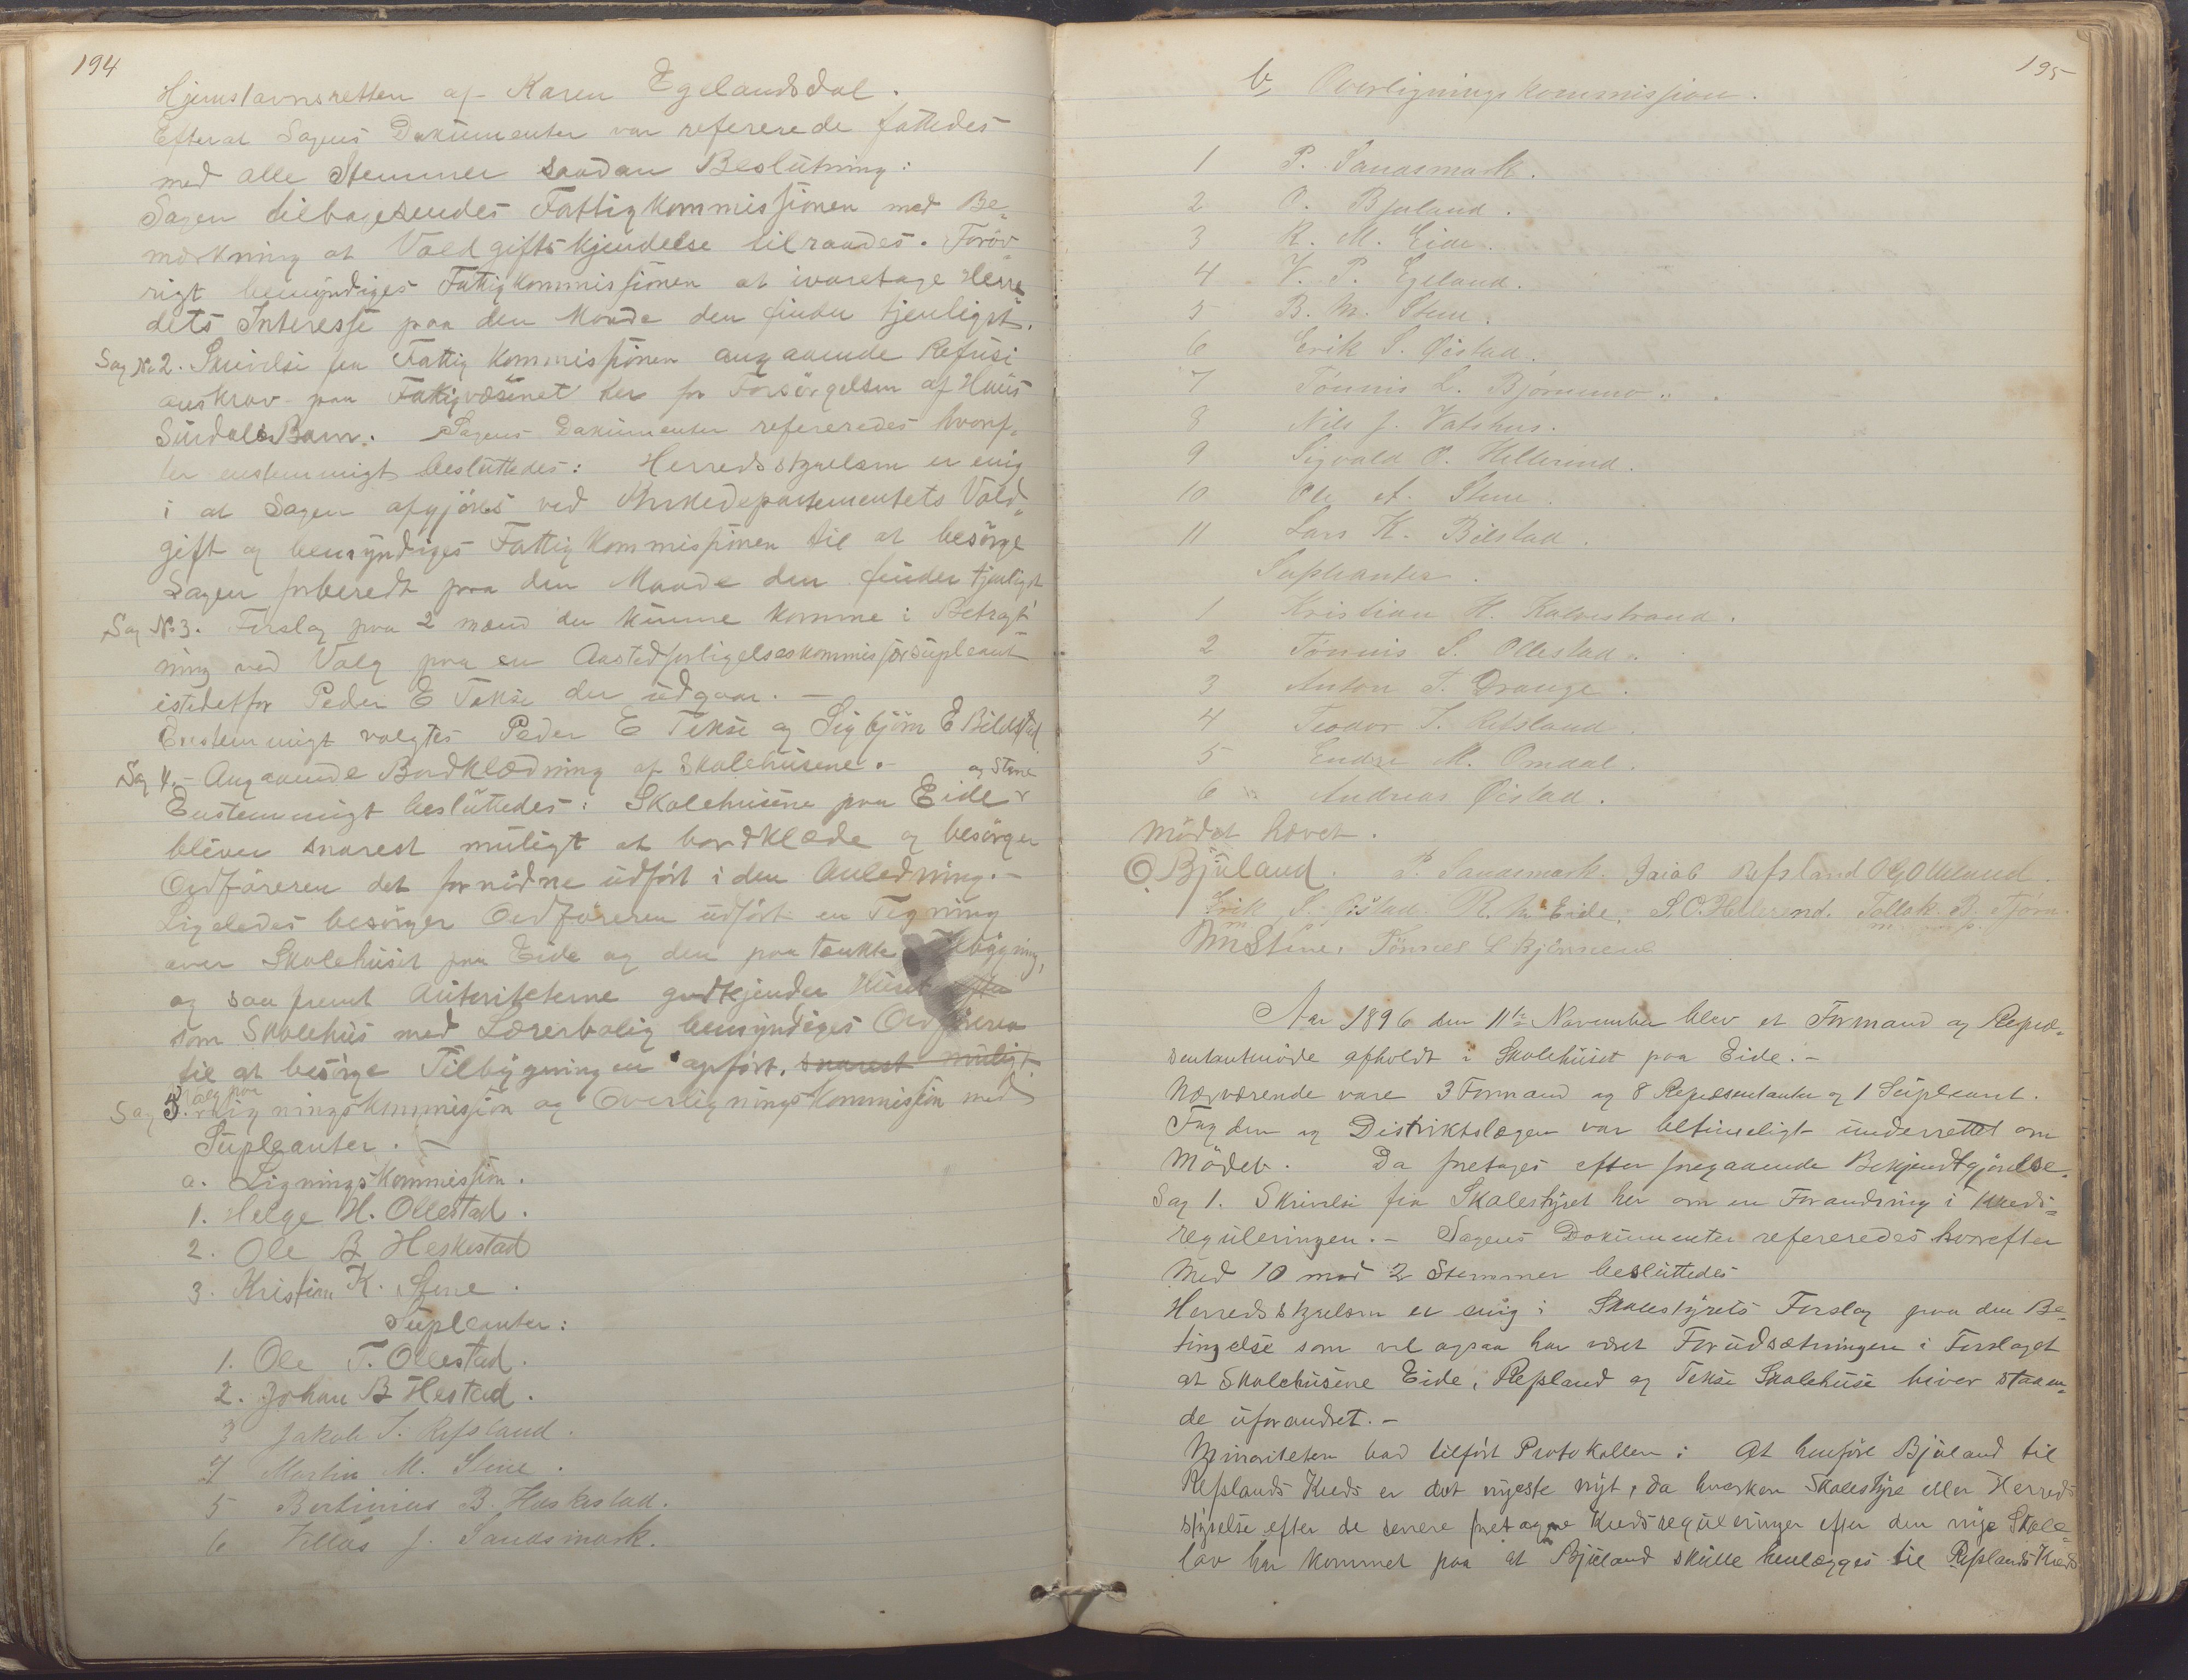 194
Hjemstavnsretten af Karen Egelandsdal.
Efterat Sagens Dokumenter var refererede fattedes
med alle Stemmer saadan Beslutning:
Sagen tilbagesendes Fattigkommissionen med Be-
mærkning at Voldgiftskjendelse tilraades. Forøv-
rigt bemyndiges Fattigkommissionen at ivaretage Herre
dets Interesse paa den Maade den finder tjenligst.
Sag No 2. Skrivelse fra Fattigkommissionen angaaende Refusi
onskrav paa Fattigvæsenet her for Forsørgelsen af Hans
Sirdals Barn. Sagens Dokumenter refereredes hvoref-
ter enstemmigt besluttedes: Herredsstyrelsen er enig
i at Sagen afgjöres ved Kirkedepartementets Vold-
gift og bemyndiges Fattigkommissionen til at besörge
Sagen forberedt paa den Maade den finder tjenligst
Sag No 3. Forslag paa 2 mænd der kunne komme i Betragt
ning ved Valg paa en Aastedforligelseskommissørsupleant
istedetfor Peder E Tekse der udgaar. -
Enstemmigt valgtes Peder E Tekse og Sigbjörn E Bildstad
Sag 4. - Angaaende Bordklædning af Skolehusene. -
og Stene
Enstemmigt besluttedes: Skolehusene paa Eide v
bliver snarest muligt at bordklæde og besörger
Ordføreren det fornødne udført i den Anledning. -
Ligeledes besörger Ordføreren udført en Tegning
over Skolehuset paa Eide og den paatænkte Tilbygning,
og saafremt Autoriteterne godkjender Huset efter
som Skolehus med Lærerbolig bemyndiges Ordføreren
til at besörge Tilbygningen opført. snarest muligt.
Valg paa
Sag 5. Ligningskommission og Overligningskommission med
Supleanter. -
a. Ligningskommission.
1. Helge H. Ollestad.
2. Ole B Heskestad
3. Kristian K. Stene.
Supleanter:
1. Ole T. Ollestad.
2. Johan B Hestad.
3 Jakob T. Refsland.
4 Martin M. Stene.
5 Bertinius B. Heskestad.
6 Villas J. Sandsmark.
195
b, Overligningskommission.
1 P. Sandsmark.
2 O. Bjuland.
3 R. M. Eide.
4 V. P. Egeland.
5 B. M. Stene.
6 Erik S. Øistad.
7 Tönnis L. Bjørnemo.
8 Nils J. Vatshus.
9 Sigvald O. Hellerend.
10 Ole A. Stene.
11 Lars K. Bilstad.
Supleanter.
1 Kristian H. Kalvestrand.
2 Tönnis S. Ollestad.
3 Anton T. Drange.
4 Teodor T. Refsland.
5 Endre M. Omdal.
6 Andreas Øistad.
Mödet hævet.
O Bjuland. P. Sandsmark. Jacob Refsland O G Ollestad.
Erik S. Øistad. R. M Eide. S. O. Hellerend. Tollak B. Tjörn.
BM Stene. Tönnes L Bjørnemo
Aar 1896 den 11te November blev et Formand og Repræ-
sentantmöde afholdt i Skolehuset paa Eide. -
Nærværende vare 3 Formænd og 8 Repræsentanter og 1 Supleant.
Fogden og Distriktslægen var betimeligt underrettet om
Mödet. Da foretoges efter foregaaende Bekjendtgjörelse.
Sag 1. Skrivelse fra Skolestyret her om en Forandring i Kreds-
reguleringen. - Sagens Dokumenter refereredes hvorefter
Med 10 mod 2 Stemmer besluttedes
Herredsstyrelsen er enig i Skolestyrets Forslag paa den Be-
tingelse som vel ogsaa har været Forudsætningen i Forslaget
at Skolehusene Eide, Refsland og Tekse Skolehuse bliver staaen-
de uforandret. -
Minoriteten bad tilført Protokollen: At henføre Bjuland til
Refslands Kreds er det nyeste nyt, da hverken Skolestyre eller Herreds
styrelse efter de senere foretagne Kredsreguleringer efter den nye Skole-
lov har kommet paa at Bjuland skulle henlægges til Refslands Kreds